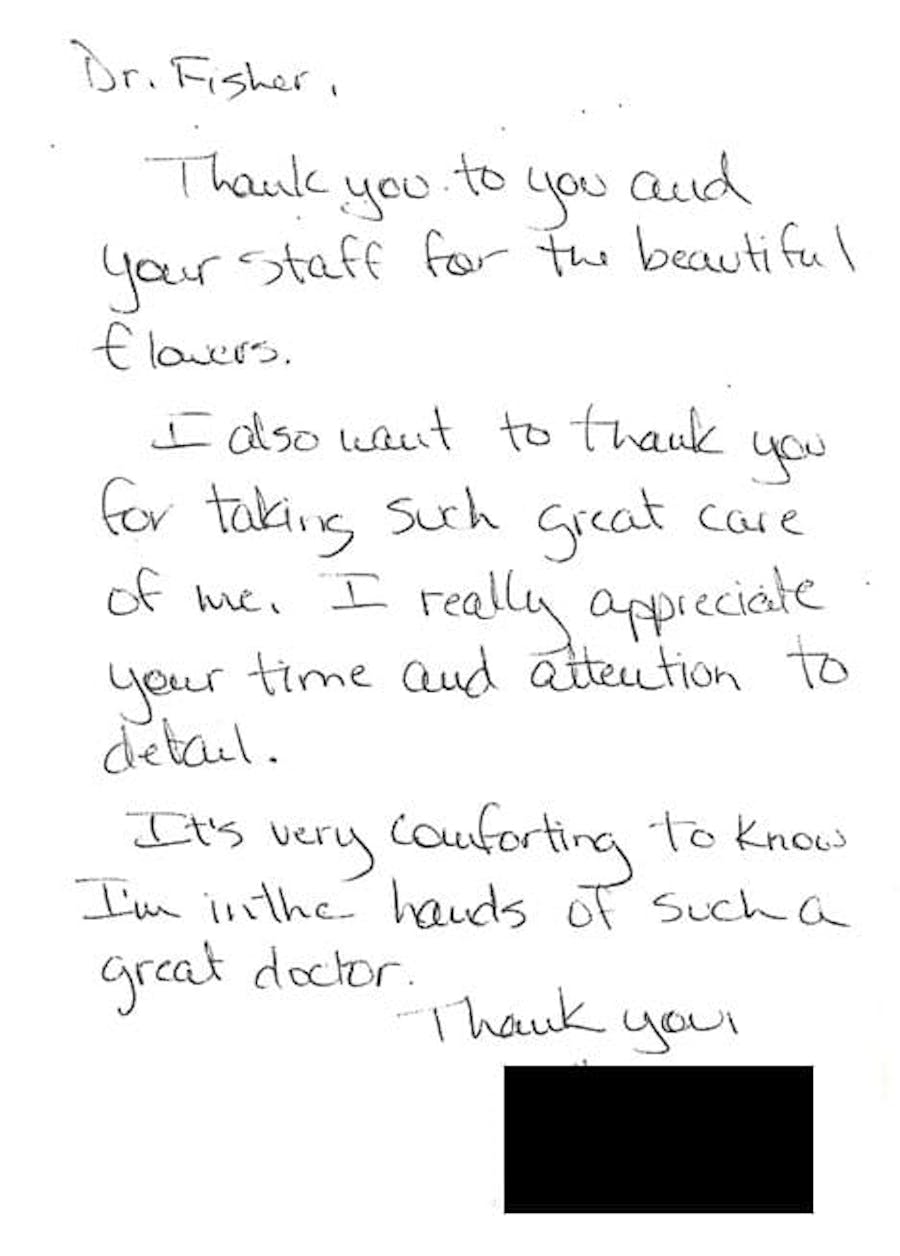 Dr. Fisher,
Thank you to you and
your staff for the beautiful
flowers.
I also want to thank you
for taking such great care
of me. I really appreciate
your time and attention to
detail.
It's very comforting to know
I'm in the hands of such a
great doctor.
Thank you,